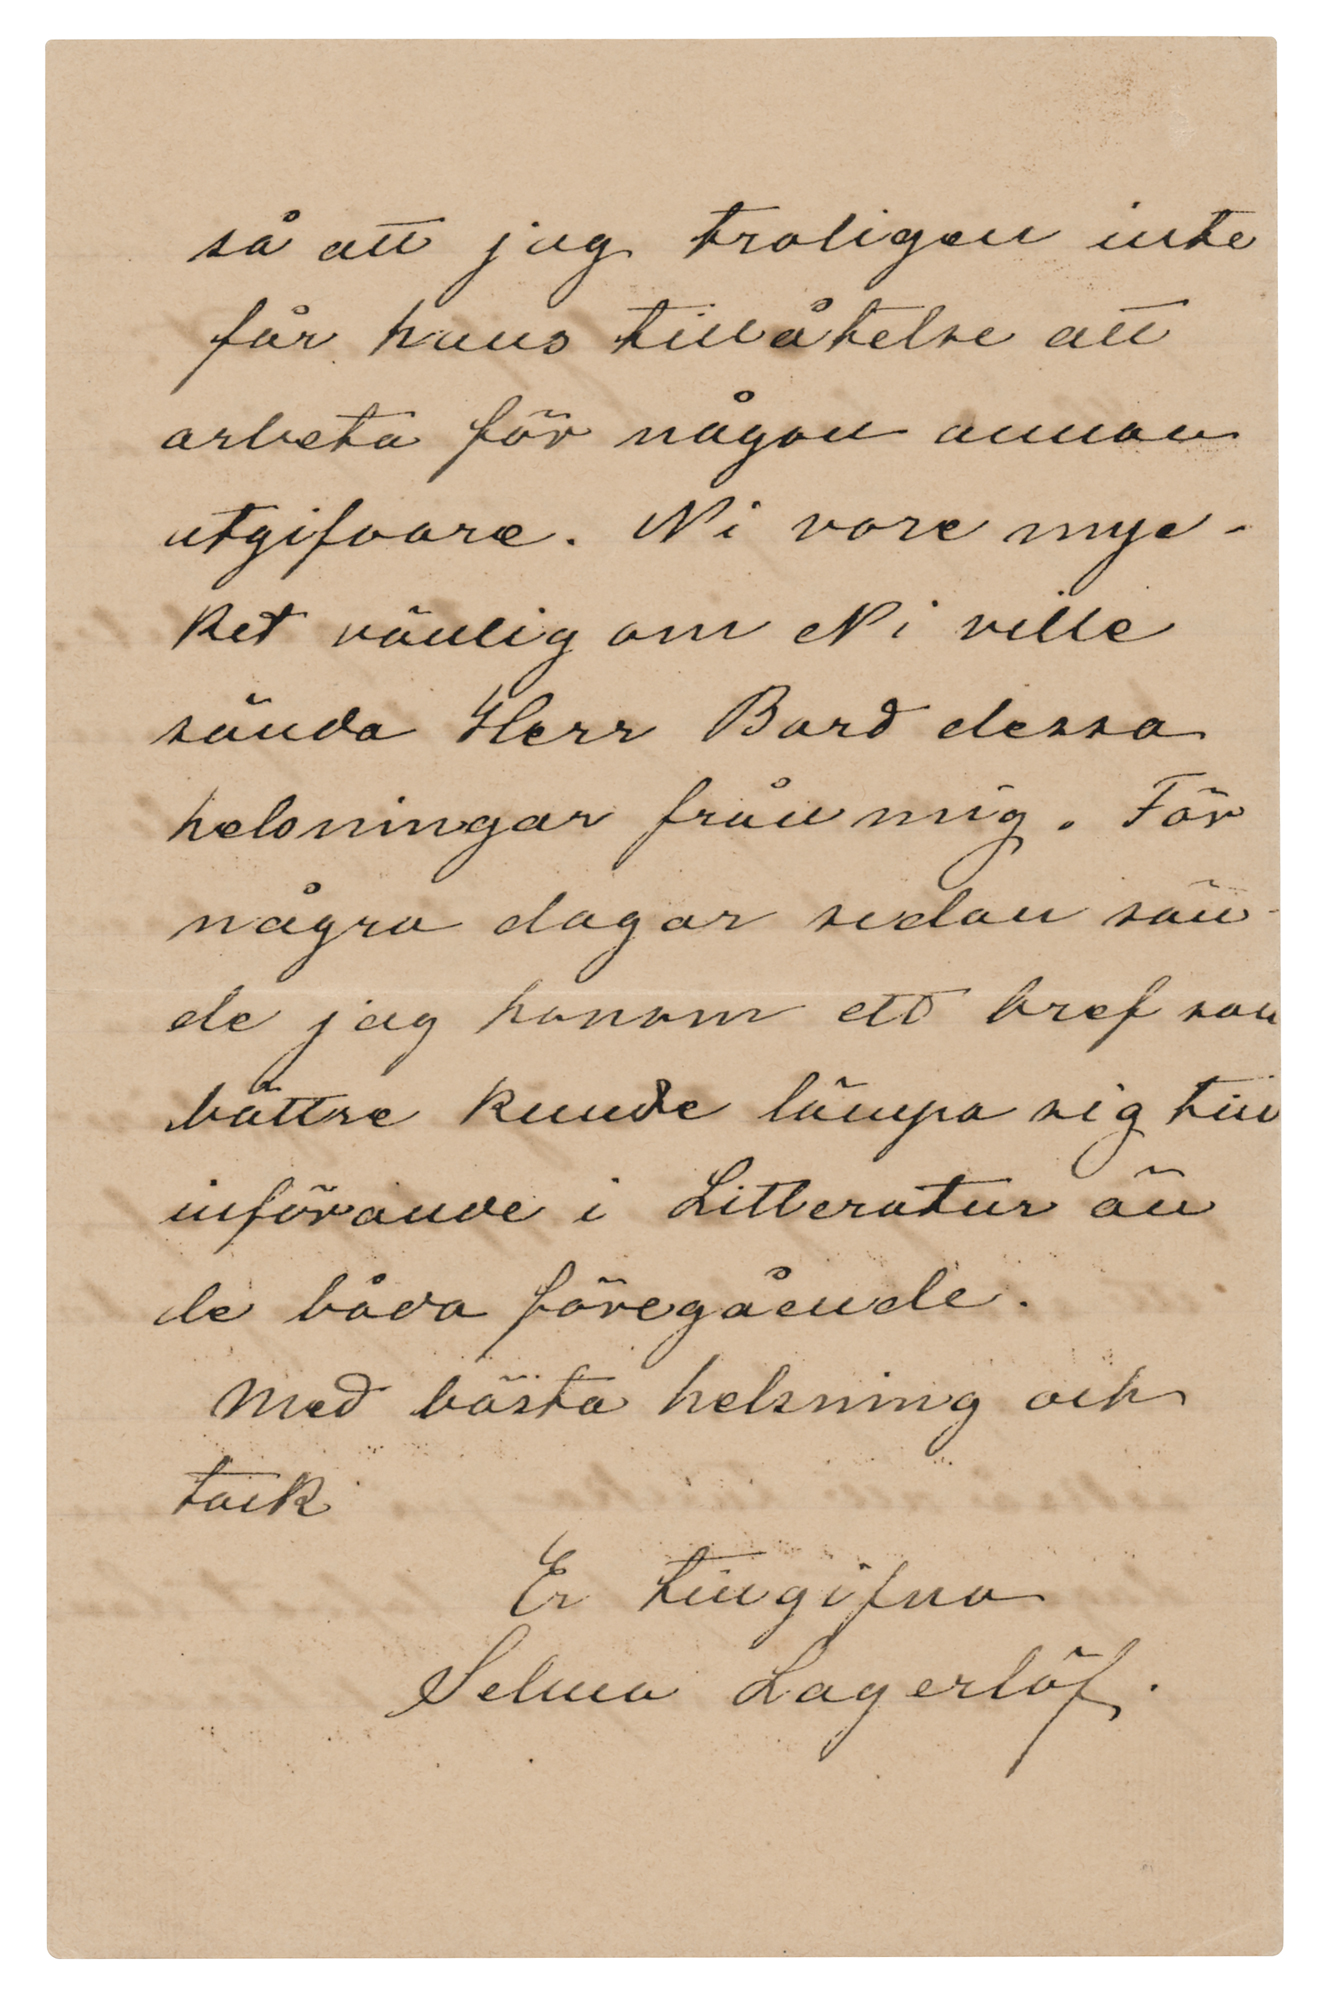 så att jag troligen inte
får hans tillåtelse att
arbeta för någon annan
utgifvare. Ni vore myc-
ket vänlig om Ni ville
sända Herr Bard dessa
helsningar från mig. För
några dagar sedan sän-
de jag honom ett bref som
bättre kunde lämpa sig till
införande i Litteratur än
de båda föregående.
Med bästa helsning och
tack
Er tillgifna
Selma Lagerlöf.